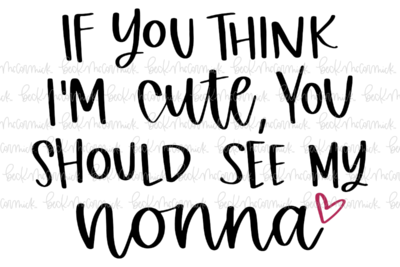 IF YOU THINK
I'M cute, YOU
SHOULD SEE MY
nonna